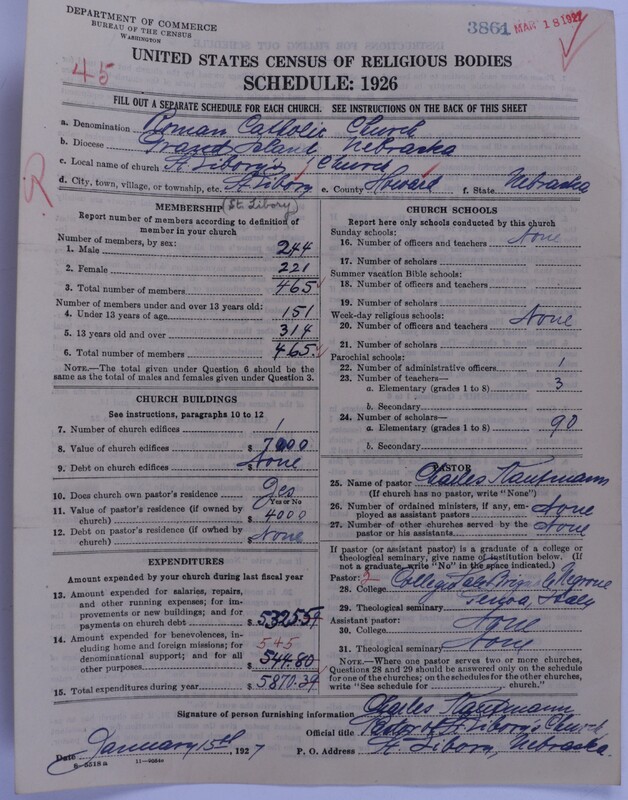 DEPARTMENT OF COMMERCE
BUREAU OF THE CENSUS
WASHINGTON
3861 MAR 18 1927
45
UNITED STATES CENSUS OF RELIGIOUS BODIES
SCHEDULE: 1926
FILL OUT A SEPARATE SCHEDULE FOR EACH CHURCH. SEE INSTRUCTIONS ON THE BACK OF THIS SHEET
a. Denomination Roman Catholic Church
b. Diocese Grand Island, Nebraska
c. Local name of church St Libory's Church
d. City, town, village, or township, etc. St Libory e. County Howard f. State Nebraska
R
MEMBERSHIP (St. Libory)
Report number of members according to definition of
member in your church
Number of members, by sex:
1. Male 244
2. Female 221
3. Total number of members 465
Number of members under and over 13 years old:
4. Under 13 years of age 151
5. 13 years old and over 314
6. Total number of members 465
NOTE.—The total given under Question 6 should be
the same as the total of males and females given under Question 3.
CHURCH BUILDINGS
See instructions, paragraphs 10 to 12
7. Number of church edifices 1
8. Value of church edifices $ 7000
9. Debt on church edifices $ None
10. Does church own pastor's residence Yes
Yes or No
11. Value of pastor's residence (if owned by
church) $ 4000
12. Debt on pastor's residence (if owned by
church) $ None
EXPENDITURES
Amount expended by your church during last fiscal year
13. Amount expended for salaries, repairs,
and other running expenses; for im-
provements or new buildings; and for
payments on church debt $ 5325.54
14. Amount expended for benevolences,
including home and foreign missions; for
denominational support; and for all
other purposes $ 544.80
545
15. Total expenditures during year $ 5870.34
CHURCH SCHOOLS
Report here only schools conducted by this church
Sunday schools:
16. Number of officers and teachers None
17. Number of scholars
Summer vacation Bible schools:
18. Number of officers and teachers
19. Number of scholars
Week-day religious schools:
20. Number of officers and teachers None
21. Number of scholars
Parochial schools:
22. Number of administrative officers 1
23. Number of teachers—
a. Elementary (grades 1 to 8) 3
b. Secondary
24. Number of scholars—
a. Elementary (grades 1 to 8) 90
b. Secondary
PASTOR
25. Name of pastor Charles Kaufmann
(If church has no pastor, write "None")
26. Number of ordained ministers, if any, em-
ployed as assistant pastors None
27. Number of other churches served by the
pastor or his assistants None
If pastor (or assistant pastor) is a graduate of a college or
theological seminary, give name of institution below. (If
not a graduate, write "No" in the space indicated.)
Pastor: 2
28. College College Negrone
29. Theological seminary Genoa, Italy
Assistant pastor:
30. College None
31. Theological seminary None
NOTE.—Where one pastor serves two or more churches,
Questions 28 and 29 should be answered only on the schedule
for one of the churches; on the schedules for the other churches,
write "See schedule for church."
Signature of person furnishing information Charles Kaufmann
Official title Pastor of St Libory's Church
Date January 15th, 1927 P. O. Address St Libory, Nebraska.
8-5518a 11-9084